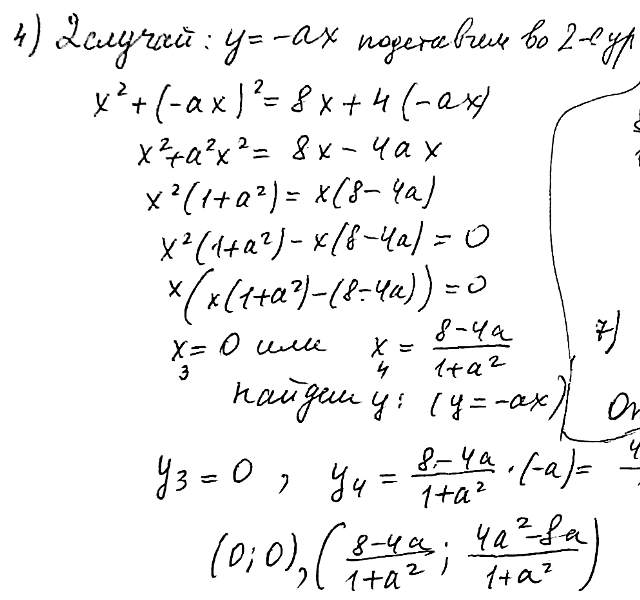 4) 2 случай: y = -ax подставим во 2-е ур
x² + (-ax)² = 8x + 4(-ax)
x² + a²x² = 8x - 4ax
x²(1+a²) = x(8-4a)
x²(1+a²) - x(8-4a) = 0
x(x(1+a²) - (8-4a)) = 0
x₃ = 0 или x₄ = (8-4a)/(1+a²)
7)
найдем y: (y = -ax)
y₃ = 0, y₄ = (8-4a)/(1+a²) · (-a) =
(0;0), ((8-4a)/(1+a²); (4a²-8a)/(1+a²))